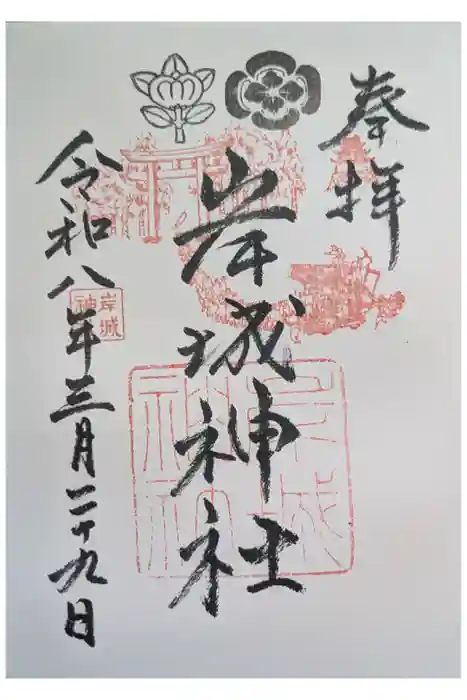 奉拝
岸城神社
岸城神社
令和八年三月二十九日
岸城神